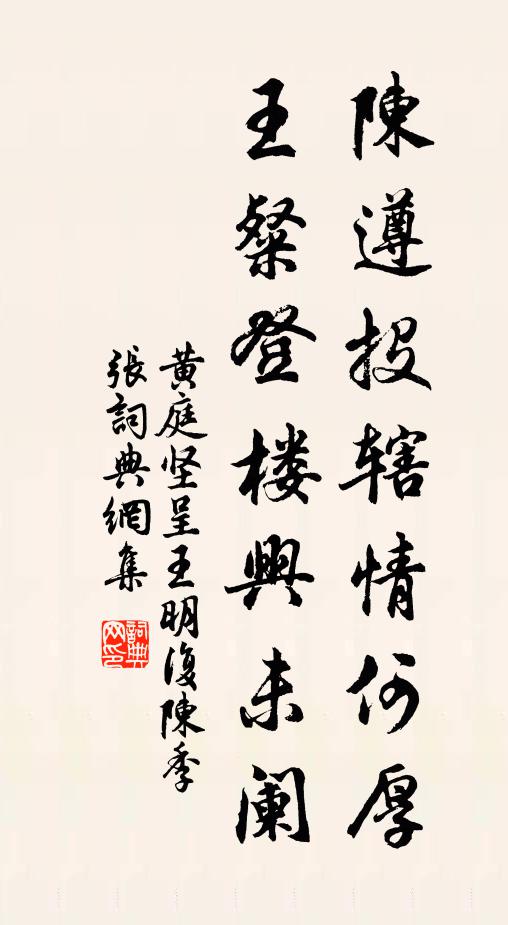 陳遵投辖情何厚
王粲登楼興未阑
黄庭坚呈王明復陳季
張詞典網集
詞典
网印